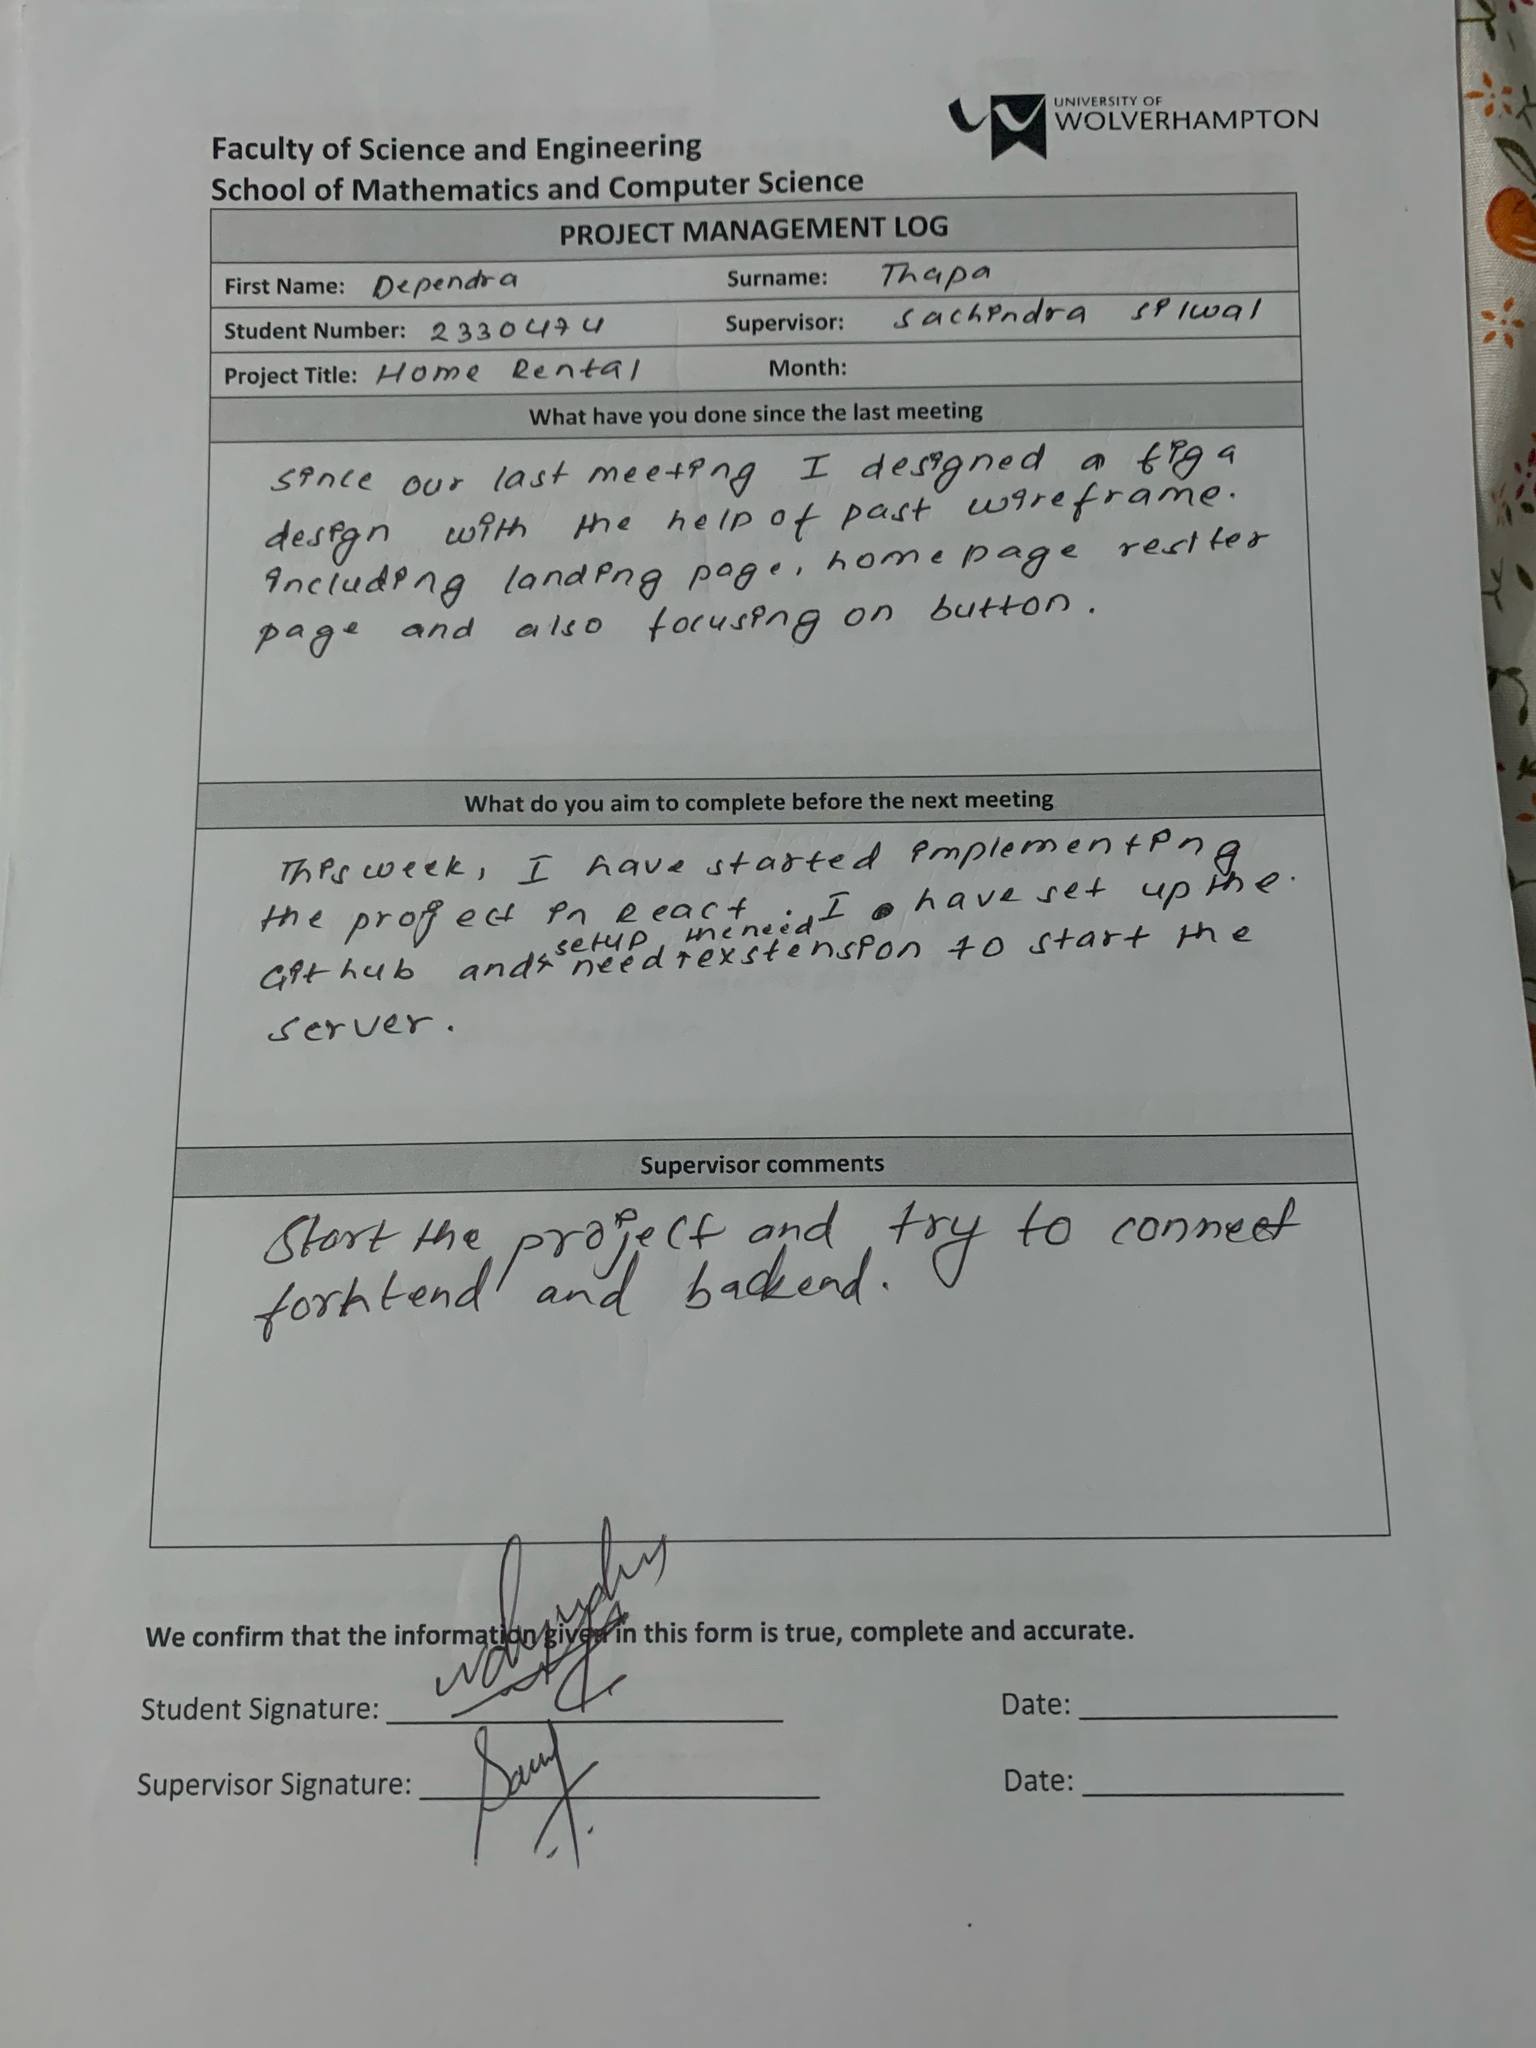 UNIVERSITY OF
WOLVERHAMPTON
Faculty of Science and Engineering
School of Mathematics and Computer Science
PROJECT MANAGEMENT LOG
First Name: Dependra Surname: Thapa
Student Number: 2330474 Supervisor: Sachindra Silwal
Project Title: Home Rental Month:
What have you done since the last meeting
Since our last meeting I designed a figa
design with the help of past wireframe.
including landing page, home page resiter
page and also focusing on button.
What do you aim to complete before the next meeting
This week, I have started implementing
the project in React. I have set up the
setup the need
Github and need exstension to start the
server.
Supervisor comments
Start the project and try to connect
forntend and backend.
We confirm that the information given in this form is true, complete and accurate.
Student Signature: Date:
Supervisor Signature: Date: